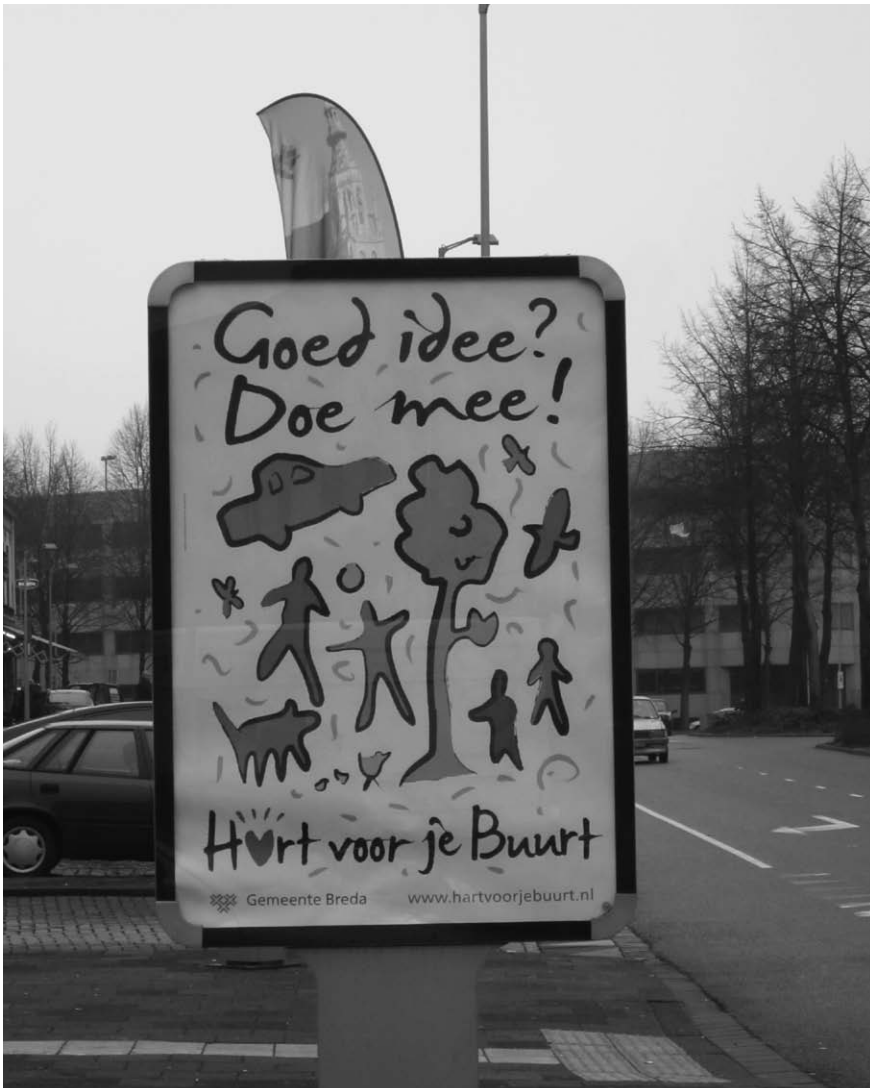 Goed idee?
Doe mee!
Hart voor je Buurt
Gemeente Breda www.hartvoorjebuurt.nl